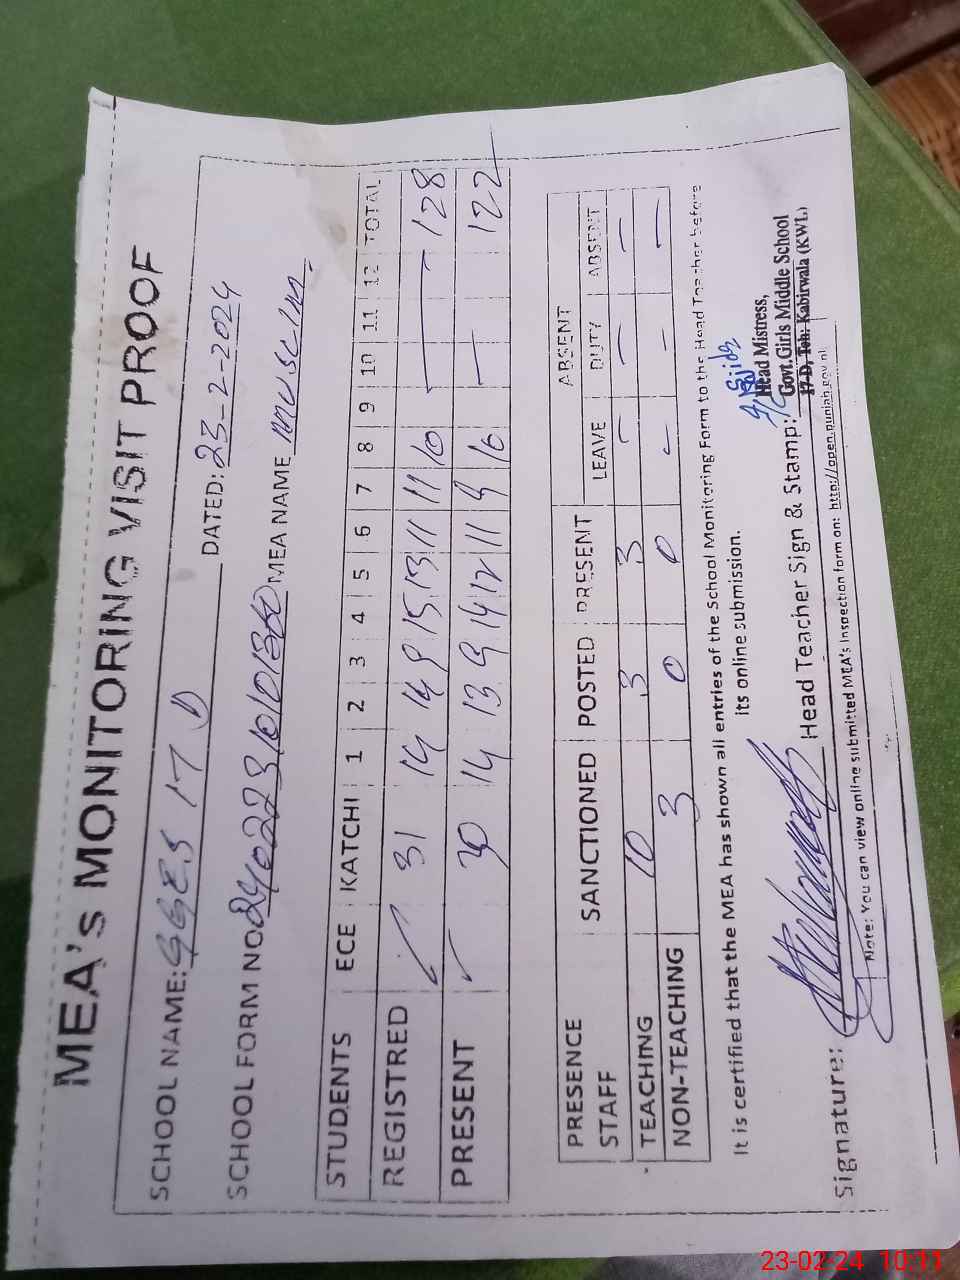 MEA's MONITORING VISIT PROOF
SCHOOL NAME: GGES 17 D DATED: 23-2-2024
SCHOOL FORM NO. MEA NAME
STUDENTS ECE KATCHI 1 2 3 4 5 6 7 8 9 10 11 12 TOTAL
REGISTRED 31 14 14 9 15 13 11 11 10 — — 128
PRESENT 30 14 13 9 14 12 11 9 10 — 122
PRESENCE STAFF SANCTIONED POSTED PRESENT ABSENT
LEAVE DUTY ABSENT
TEACHING 10 3 3 — — —
NON-TEACHING 3 0 0 — — —
It is certified that the MEA has shown all entries of the School Monitoring Form to the Head Teacher before
its online submission.
Head Mistress,
Govt. Girls Middle School
17-D, Teh: Kabirwala (KWL)
Signature: Head Teacher Sign & Stamp:
Note: You can view online submitted MEA's Inspection form on: http://open.punjab.gov.pk
23-02-24 10:11